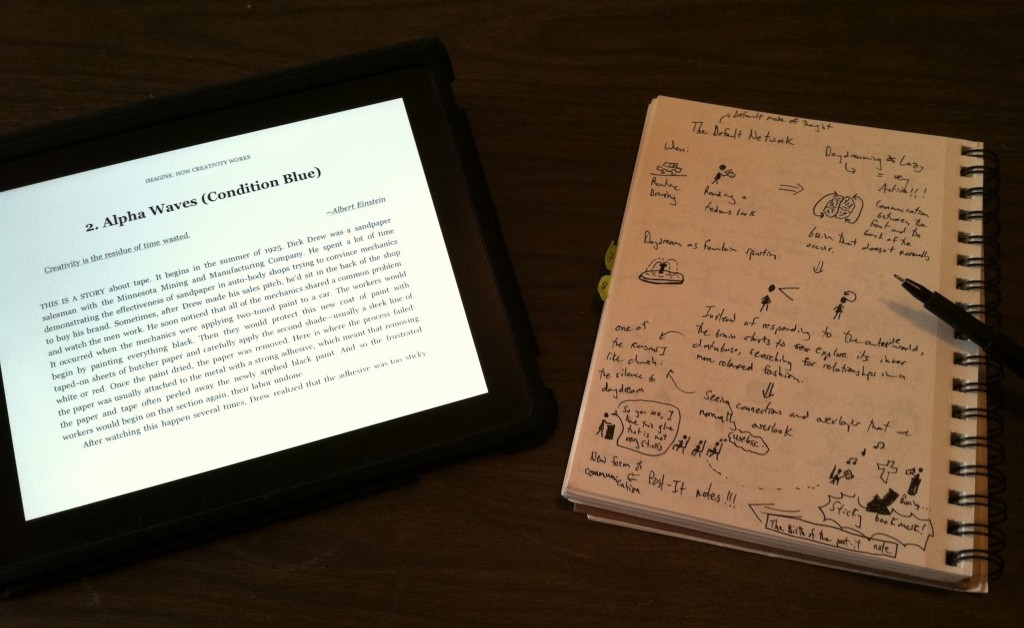 IMAGINE: HOW CREATIVITY WORKS
2. Alpha Waves (Condition Blue)
Creativity is the residue of time wasted.
—Albert Einstein
THIS IS A STORY about tape. It begins in the summer of 1925. Dick Drew was a sandpaper
salesman with the Minnesota Mining and Manufacturing Company. He spent a lot of time
demonstrating the effectiveness of sandpaper in auto-body shops trying to convince mechanics
to buy his brand. Sometimes, after Drew made his sales pitch, he'd sit in the back of the shop
and watch the men work. He soon noticed that all of the mechanics shared a common problem
It occurred when the mechanics were applying two-toned paint to a car. The workers would
begin by painting everything black. Then they would protect this new coat of paint with
taped-on sheets of butcher paper and carefully apply the second shade—usually a sleek line of
white or red. Once the paint dried, the paper was removed. Here is where the process failed:
the paper was usually attached to the metal with a strong adhesive, which meant that removing
the paper and tape often peeled away the newly applied black paint. And so the frustrated
workers would begin on that section again, their labor undone
After watching this happen several times, Drew realized that the adhesive was too sticky
Default mode of thought
The Default Network
When:
Routine
Driving
Reading a
tedious book
Daydreaming ≠ Lazy
= very
Active!!!
Communication
between the
front and the
back of the
brain that doesn't normally
occur.
Daydream as fountain spurting.
Instead of responding to the outside world,
the brain starts to explore its inner
database, searching for relationships in a
more relaxed fashion.
one of
the reasons I
like church:
the silence to
daydream
Seeing connections and overlaps that we
normally overlook
So you see, I
have this glue
that is not
very sticky
Useless.
New form of
communication
Post-It notes!!!
Boring...
Sticky
bookmark!
The Birth of the post-it note